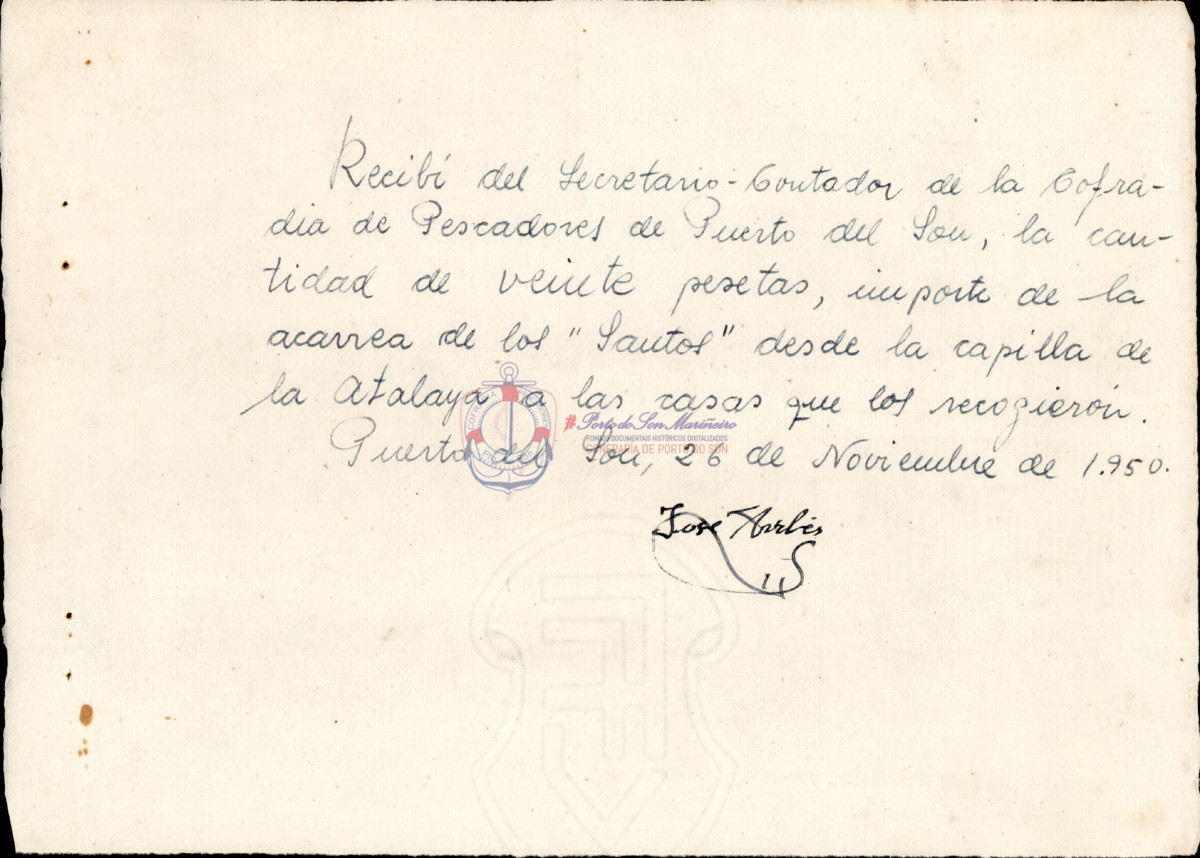 Recibí del Secretario-Contador de la Cofra-
dia de Pescadores de Puerto del Son, la can-
tidad de veinte pesetas, importe de la
acarrea de los "Santos" desde la capilla de
la Atalaya a las casas que los recogieron.
#Porto do Son Mariñeiro
FONDOS DOCUMENTAIS HISTÓRICOS DIGITALIZADOS
CONFRARÍA DE PORTO DO SON
Puerto del Son, 26 de Noviembre de 1.950.
Jose